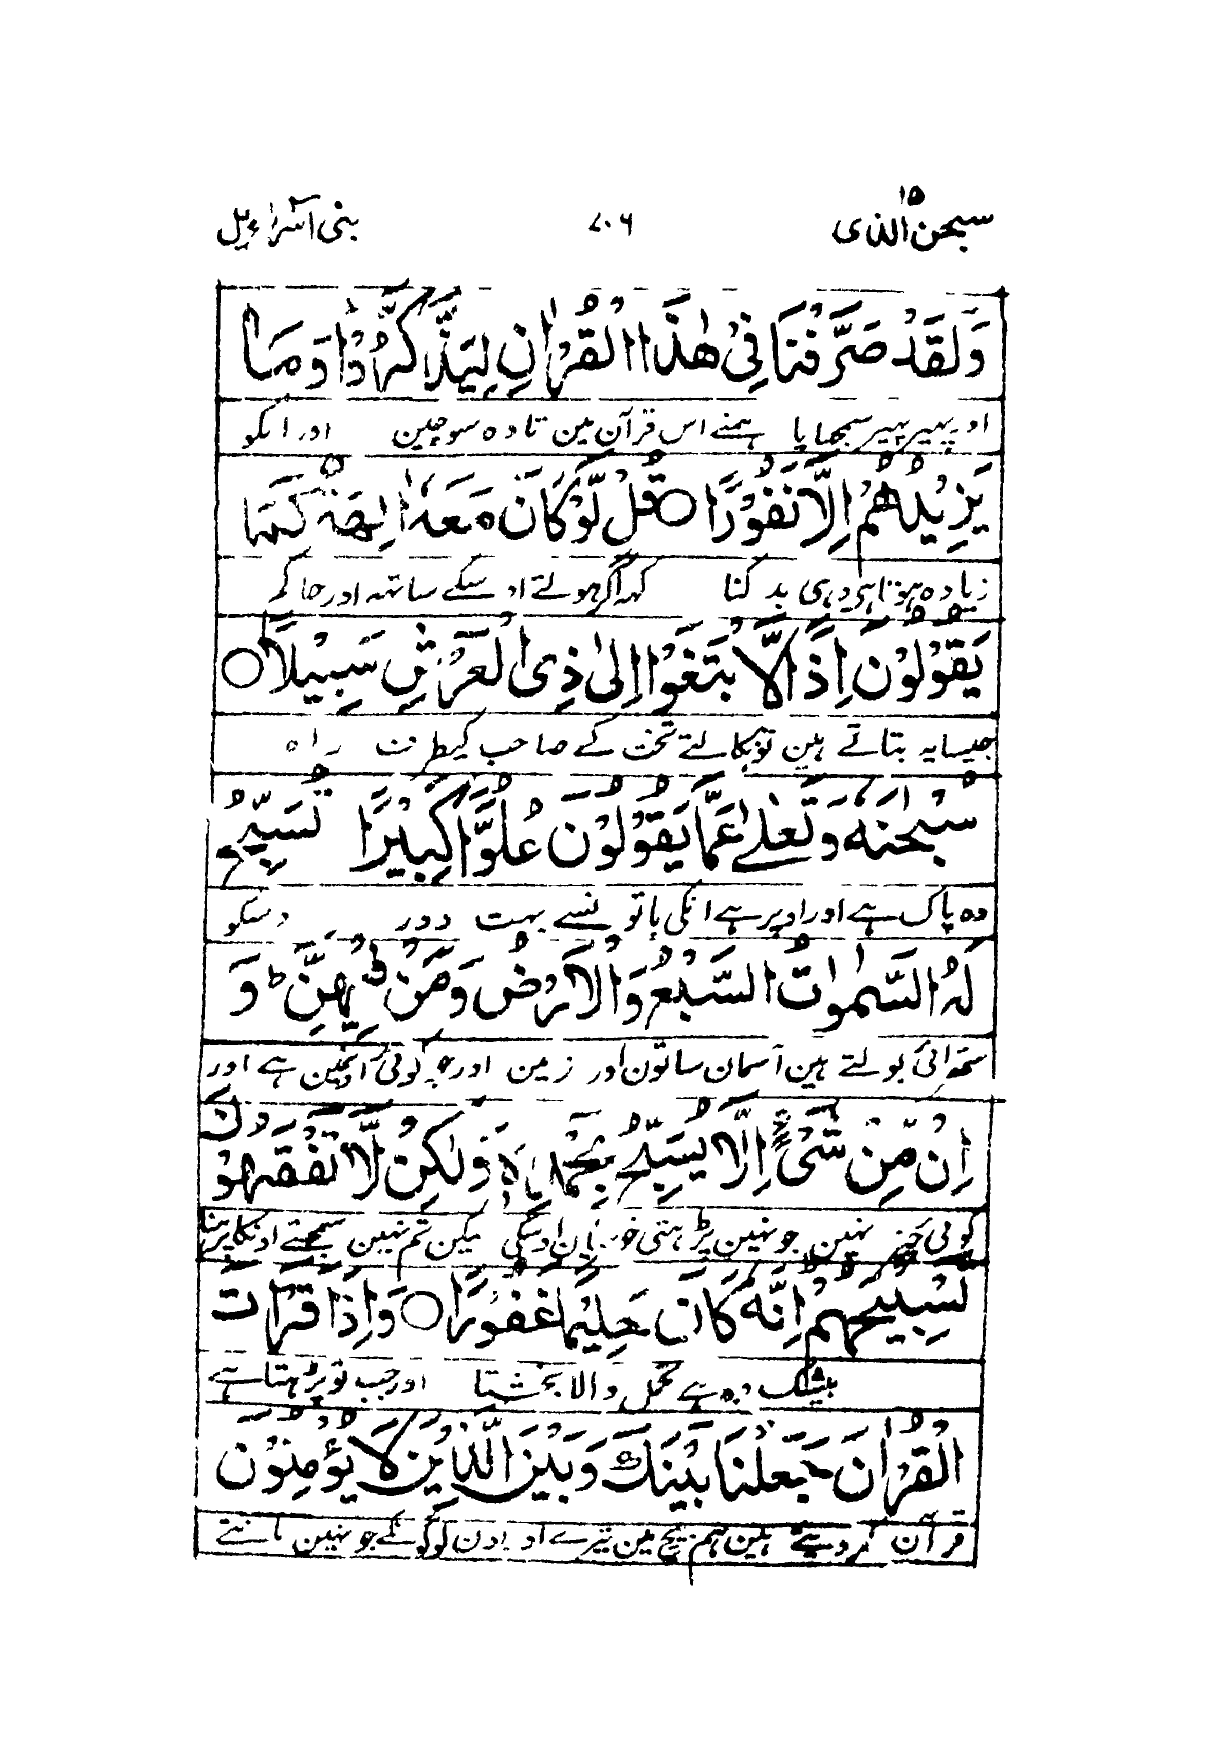 سبحن الذی ۱۵ ۷۰۶ بنی اسراءیل
وَلَقَدْ صَرَّفْنَا فِیْ هٰذَا الْقُرْاٰنِ لِیَذَّكَّرُوْا وَمَا
اور پہیر پہیر سمجھایا ہمنے اس قرآن مین تا وہ سوچین اور انکو
یَزِیْدُهُمْ اِلَّا نُفُوْرًا ○ قُلْ لَّوْ كَانَ مَعَهٗ اٰلِهَةٌ كَمَا
زیادہ ہوتا ہی وہی بدکنا کہہ اگر ہوتے اوسکے ساتہہ اور حاکم
یَقُوْلُوْنَ اِذًا لَّابْتَغَوْا اِلٰی ذِی الْعَرْشِ سَبِیْلًا ○
جیسا یہ بتاتے ہین تو نکالتے تخت کے صاحب کیطرف راہ
سُبْحٰنَهٗ وَتَعٰلٰی عَمَّا یَقُوْلُوْنَ عُلُوًّا كَبِیْرًا تُسَبِّحُ
وہ پاک ہے اور اوپر ہے انکی باتونسے بہت دور اوسکو
لَهُ السَّمٰوٰتُ السَّبْعُ وَالْاَرْضُ وَمَنْ فِیْهِنَّ ط وَ
ستھرائی بولتے ہین آسمان ساتون اور زمین اور جو کوئی اونمین ہے اور
اِنْ مِّنْ شَیْءٍ اِلَّا یُسَبِّحُ بِحَمْدِهٖ وَلٰكِنْ لَّا تَفْقَهُوْنَ
کوئی چیز نہین جو نہین پڑہتی خوبیان اوسکی لیکن تم نہین سمجھتے اونکا پڑہنا
تَسْبِیْحَهُمْ اِنَّهٗ كَانَ حَلِیْمًا غَفُوْرًا ○ وَاِذَا قَرَاْتَ
بیشک وہ ہے تحمل والا بخشتا اور جب تو پڑہتا ہے
الْقُرْاٰنَ جَعَلْنَا بَیْنَكَ وَبَیْنَ الَّذِیْنَ لَا یُؤْمِنُوْنَ
قرآن کر دیتے ہین ہم بیچ مین تیرے اور اون لوگونکے جو نہین مانتے